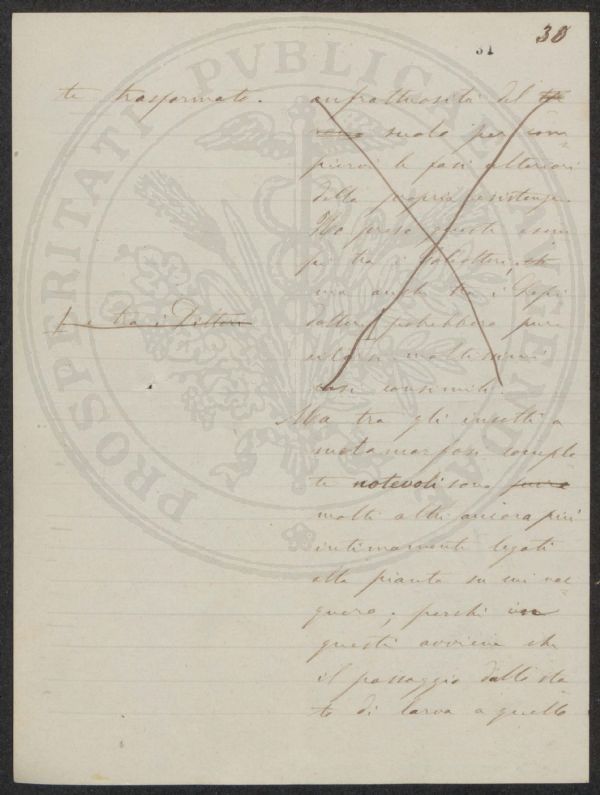 30
31
te trasformato.
anfrattuosità del
suolo per com
piervi le fasi ulteriori
della propria esistenza.
Ho preso questi esem
pi tra i Coleotteri,
ma anche tra i Lepi
dotteri potrebbero pure
e tra i Ditteri
citarsi moltissimi
casi consimili.
Ma tra gli insetti a
metamorfosi comple
te notevoli sono
molti altri ancora più
intimamente legati
alla pianta su cui nac
quero, perchè in
questi avviene che
il passaggio dallo sta
to di larva a quello
PROSPERITATI PVBLICAE AVGENDAE